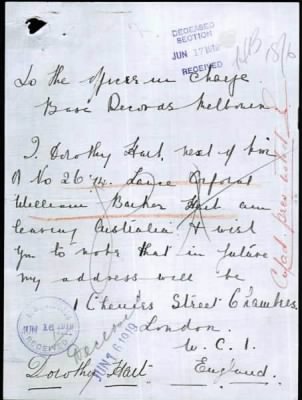 DECEASED
SECTION
JUN 17 1919
RECEIVED
To the officer in Charge
Base Records Melbourne
I, Dorothy Hart, next of kin
of No 26 Lance Corporal
William Barker Hart am
leaving Australia & wish
you to note that in future
my address will be
1 Chenies Street Chambers
London
W.C.1.
England.
Dorothy Hart
JUN 16 1919
RECEIVED
Deceased
JUN 16 1919